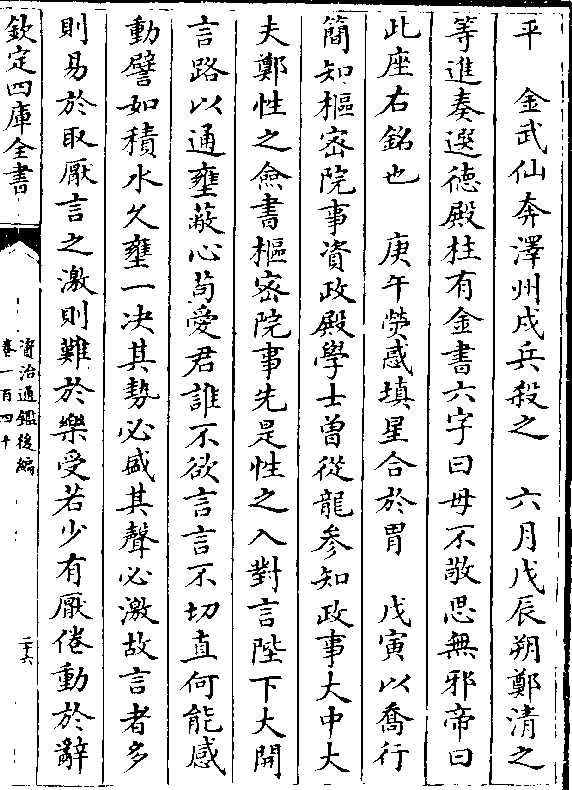 平　金武仙奔澤州戍兵殺之　六月戊辰朔鄭清之
等進奏選徳殿柱有金書六字曰毋不敬思無邪帝曰
此座右銘也　庚午熒惑填星合於胃　戊寅以喬行
簡知樞密院事資政殿學士曽從龍參知政事大中大
夫鄭性之僉書樞密院事先是性之入對言陛下大開
言路以通壅蔽心苟愛君誰不欲言言不切直何能感
動譬如積水久壅一决其勢必盛其聲必激故言者多
則易於取厭言之激則難於樂受若少有厭倦動於辭
欽定四庫全書
資治通鑑後編
卷一百四十
二十六